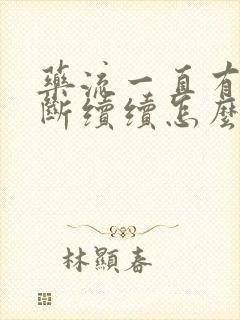 藥流一直有
斷續續怎麼
林顯春